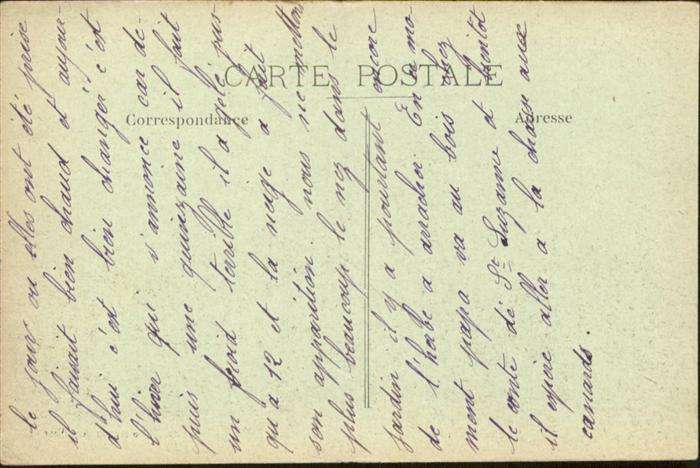 CARTE POSTALE
Correspondance
Adresse
le jour où elles ont été prise
il faisait bien chaud et aujour-
d'hui c'est bien changer c'est
l'hiver qui s'annonce car de-
puis une quinzaine il fait
un froid terrible il a gelé jus-
qu'à 12 et la neige a fait
son apparition nous ne mettons
plus beaucoup le nez dans le
jardin il y a pourtant encore
de l'herbe a arracher En ce mo
ment papa va au bois chez
le comte de Ste Suzanne et bientôt
il espère aller a la chasse aux
canards.